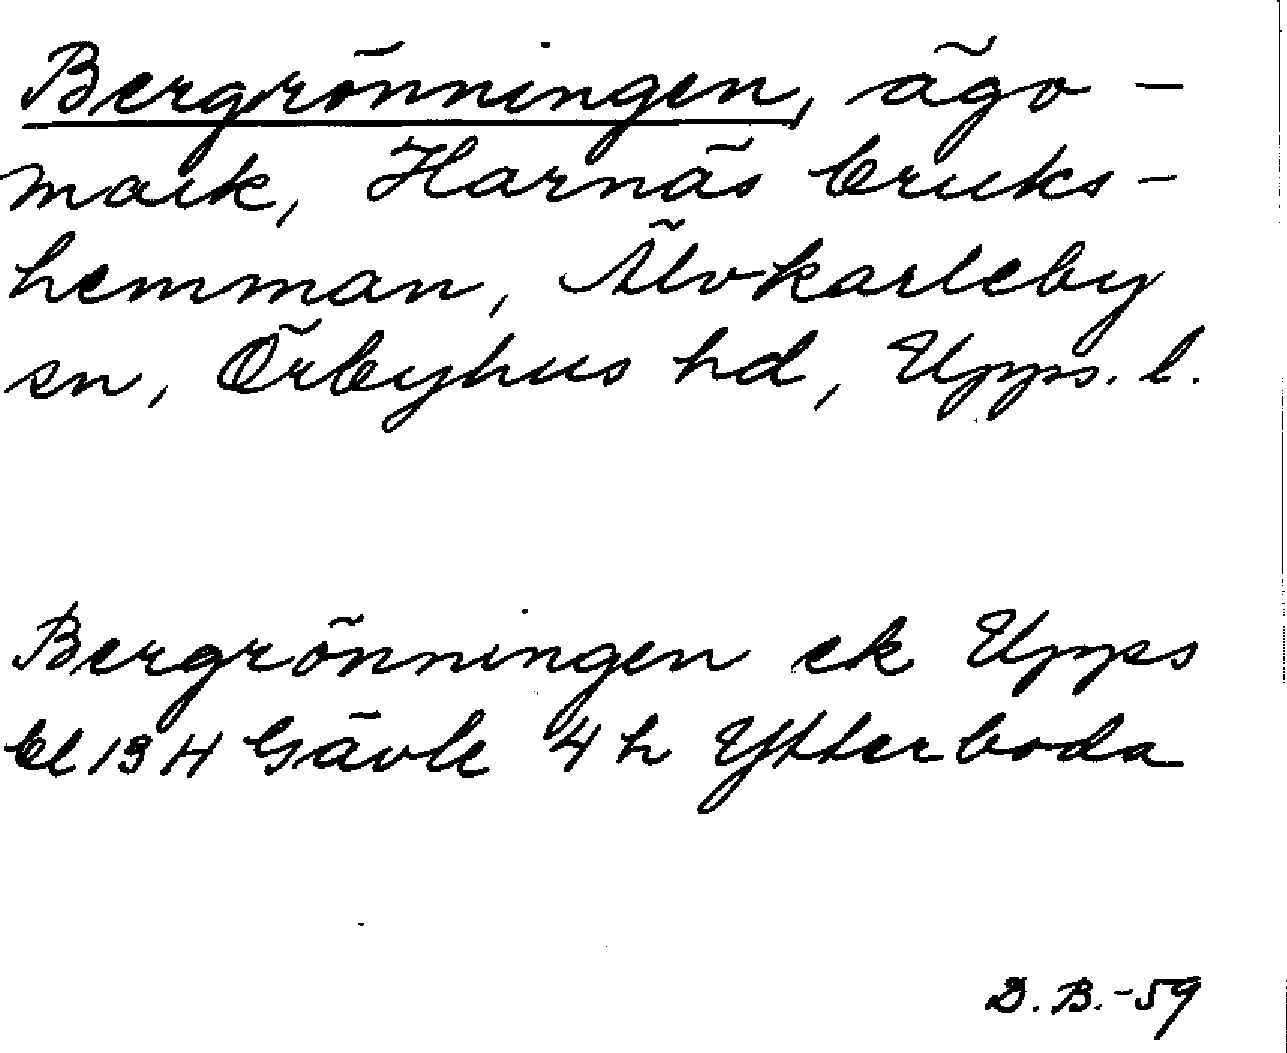 Bergrönningen, ägo-
mark, Harnäs bruks-
hemman, Älvkarleby
sn, Örbyhus hd, Upps. l.
Bergrönningen ek Upps
bl 13 H Gävle 4 h Ytterboda
D. B. -59